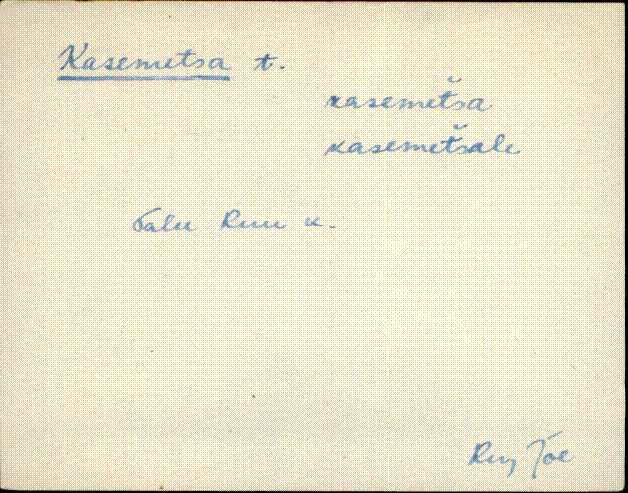 Kasemetsa t.
ᴋasemet̆sa
ᴋasemet̆sale
Talu Ruu k.
Ruu, Jõe